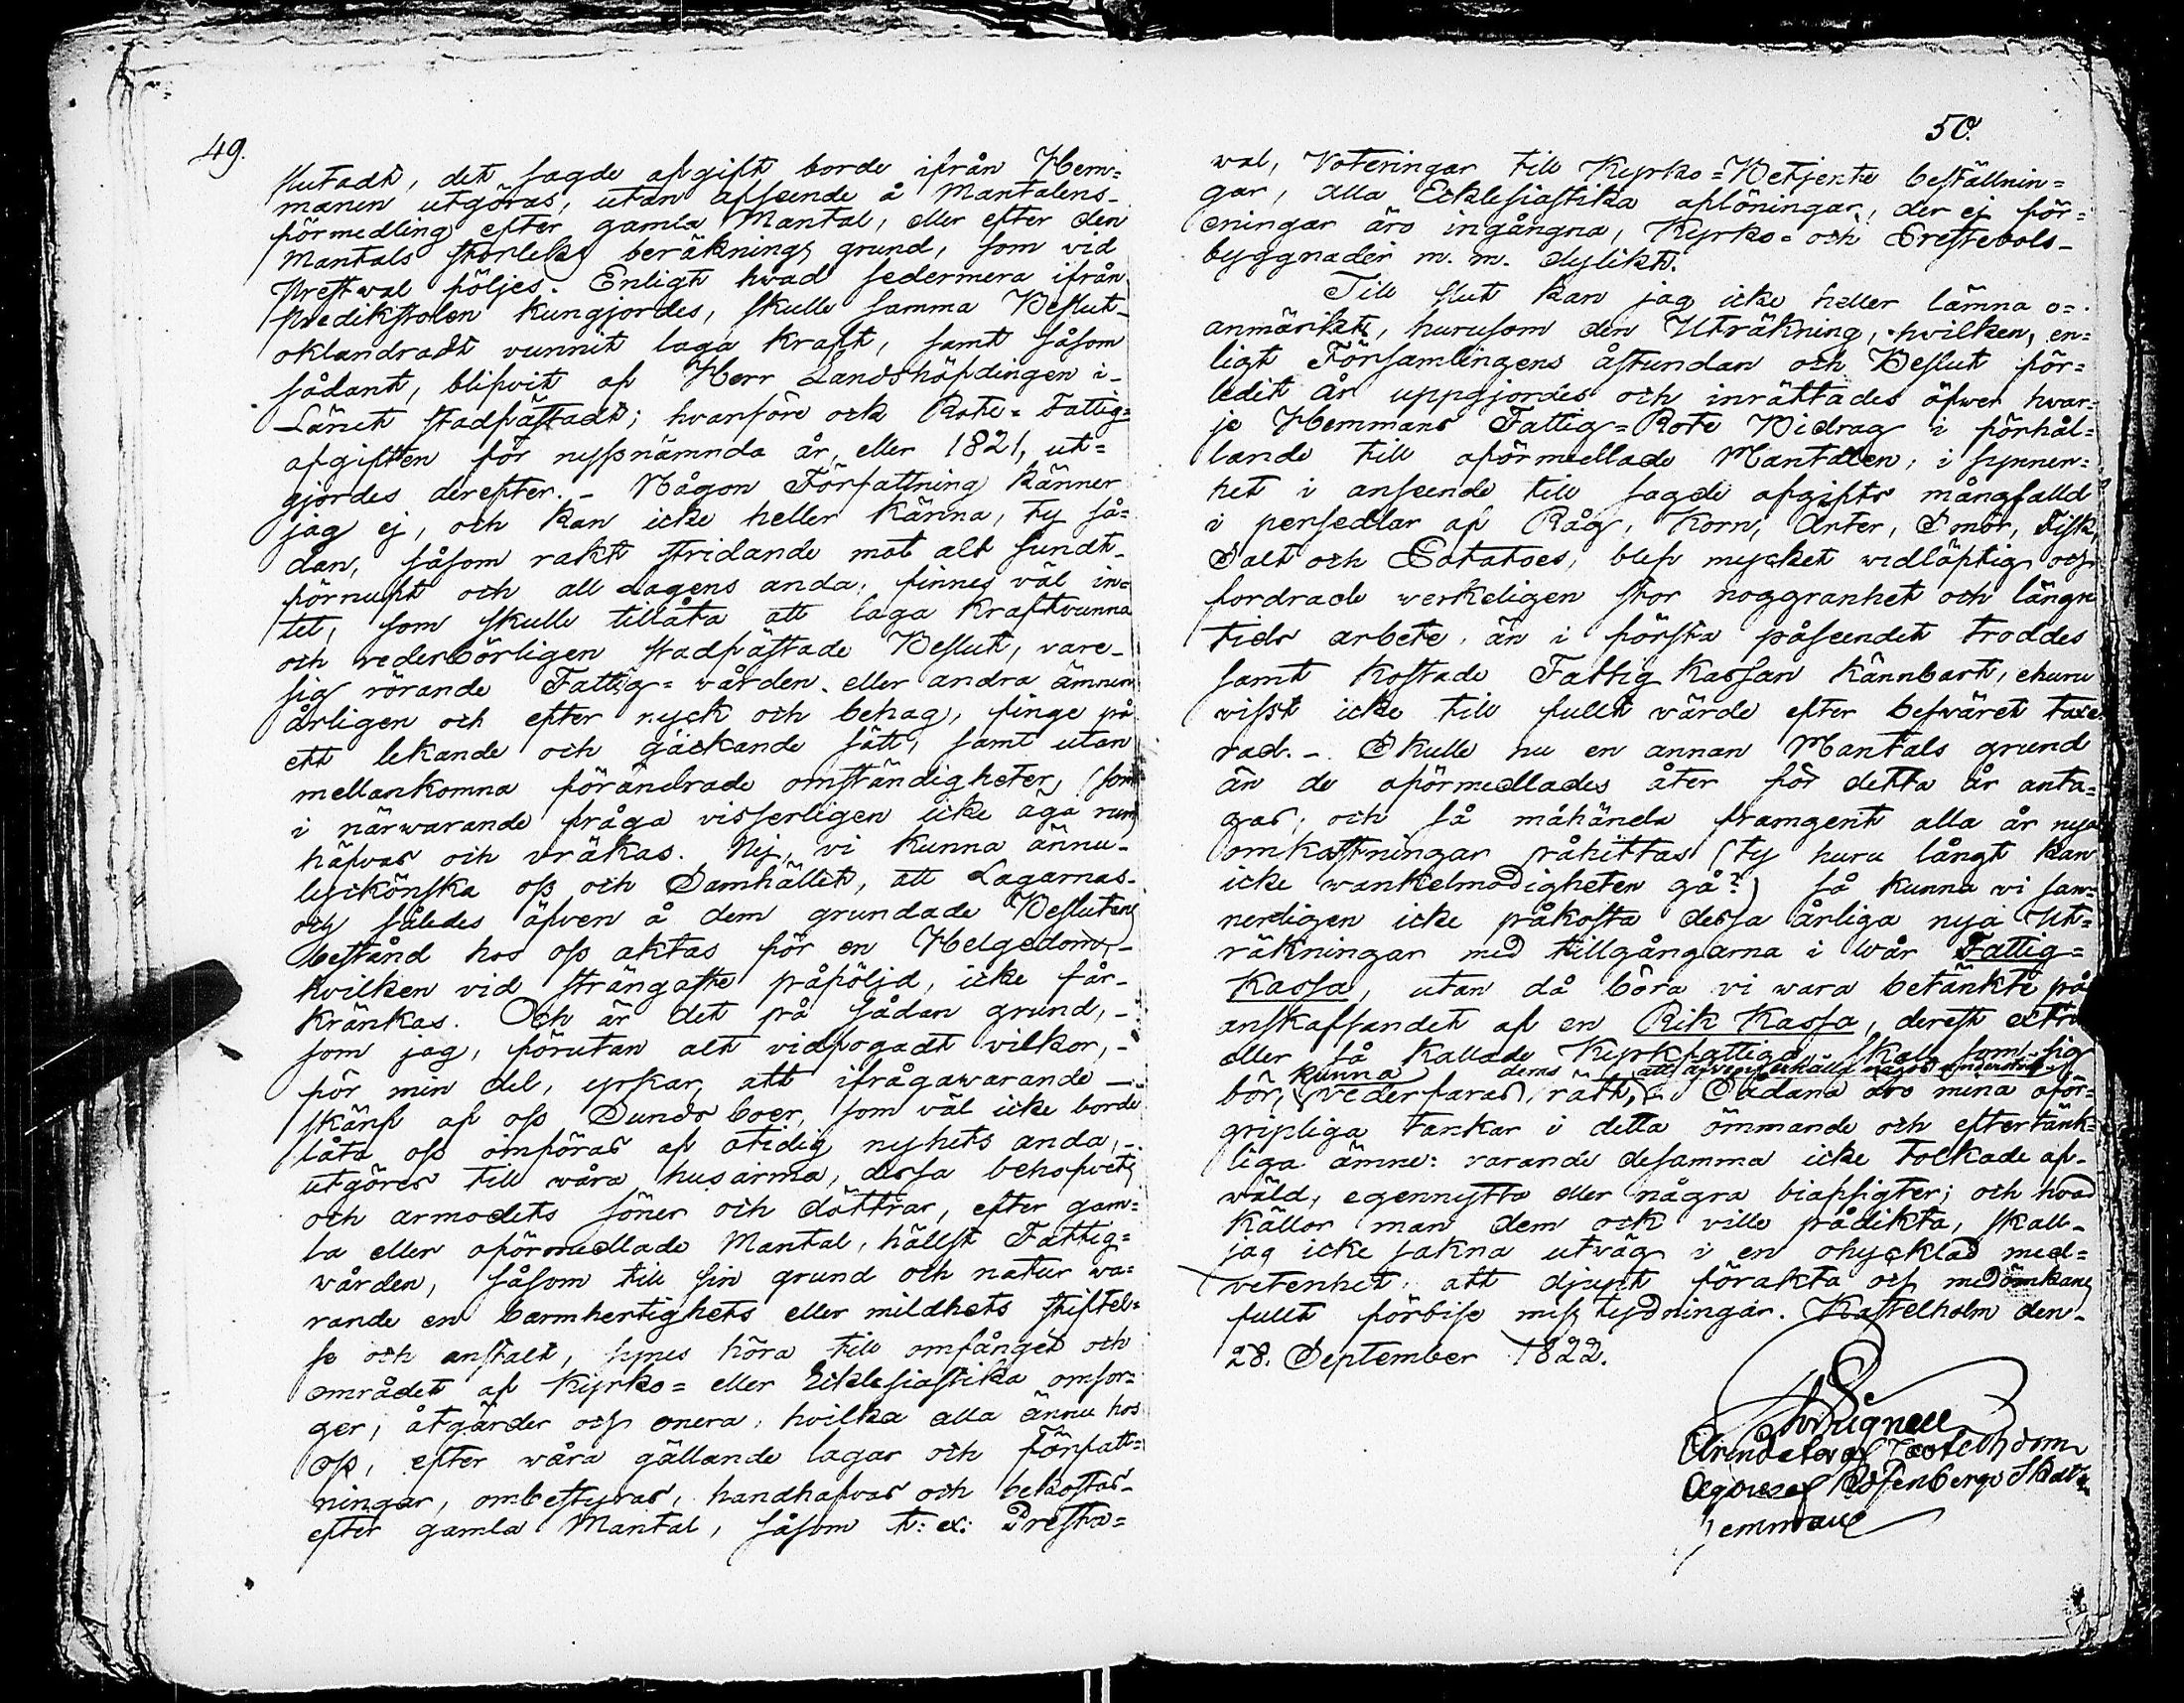 49.
slutadt, det sagde afgift borde ifrån Hem=
manen utgöras, utan afseende å Mantalens-
förmedling efter gamla Mantal, eller efter den
Mantals storleks beräknings grund, som vid
Prestwal följes. Enligt hvad sedermera ifrån
Predikstolen kungjordes, skulle samma Beslut-
oklandradt vunnit laga kraft, samt såsom
sådant, blifvit af Herr Landshöfdingen i-
Länet stadfästadt; hvarföre ock Rote= Fattig=
afgiften för nyssnämnda år, eller 1821, ut=
gjordes derefter. - Någon Författning känner
jag ej, och kan icke heller känna, ty så=
dan, såsom rakt stridande mot alt sundt-
förnuft och all dagens anda, finnes väl in=
tet, som skulle tillåta att laga kraftvunna
och vederbörligen stadfästade Beslut, vare-
sig rörande Fattig= vården, eller andra ämnen
årligen och efter nyck och behag, finge på
ett lekande och gäckande sätt, samt utan
mellankomna förändrade omständigheter, (som
i närwarande fråga visserligen icke äga rum)
häfvas och vräkas. Nej, vi kunna ännu-
lyckönska oss och Samhället, att Lagarnas-
och således äfven å dem grundade Besluten
bestånd hos oss aktas för en Helgedom,-
hvilken vid strängaste påföljd, icke får-
kränkas. Och är det på sådan grund, -
som jag, förutan alt vidfogadt vilkor, -
för min del, yrkar, att ifrågawarande -
skänk af oss Sunds boer, som väl icke borde
låta oss omföras af otidig nyhets anda, -
utgöres till wåra husarma, dessa behofvets
och armodets söner och döttrar, efter gam=
la eller oförmedlade Mantal, hällst Fattig=
wården, såsom till sin grund och natur wa=
rande en barmhertighets eller mildhets stiftel=
se och anstalt, synes höra till omfånget och
området af Kyrko= eller Ecklesiastika omsor=
ger, åtgärder och onera, hvilka alla ännu hos
oss, efter våra gällande lagar och Författ=
ningar, ombestyras, handhafvas och bekostas-
efter gamla Mantal, såsom t: ex: Presta=
50.
wal, Voteringar till Kyrko=Betjente beställnin=
gar, alla Ecklesiastika aflöningar, der ej för=
eningar äro ingångna, Kyrko= och Prestebols-
byggnader m. m. dylikt.
Till slut kan jag icke heller lämna o=
anmärkt, hurusom den Uträkning, hvilken, en=
ligt Församlingens åstundan och Beslut för=
ledit år uppgjordes och inrättades öfwer hwar=
je Hemmans Fattig=Rote Bidrag i förhål=
lande till oförmedlade Mantalen, i synner=
het i anseende till sagde afgifts mångfalld
i persedlar af Råg, Korn, Ärter, Smör, Fisk,
Salt och Potatoes, blef mycket widlöftig och
fordrade werkeligen stor noggranhet och längre
tids arbete, än i första påseendet troddes
samt kostade Fattig Kassan kännbart, ehuru
visst icke till fullt wärde efter besväret taxe=
rad. - Skulle nu en annan Mantals grund
än de oförmedlades åter för detta år anta=
gas, och så måhända framgent alla år nya
omkastningar påhittas (ty huru långt kan
icke wankelmodigheten gå?) så kunna vi san=
nerligen icke påkosta dessa årliga nya Ut=
räkningar med tillgångarna i wår Fattig=
Kassa, utan då böra vi wara betänkte på
anskaffandet af en Rik Kassa, derest
eller så kallade Kyrkfattiga, skall som sig
kunna deras att äfven erhålla något understöd
bör, vederfaras rätt, Sådana äro mina oför=
gripliga tankar i detta ömmande och eftertänk=
liga ämne: varande desamma icke tolkade af-
wäld, egennytta eller några biafsigter; och hvad
källor man dem ock ville pådikta, skall-
jag icke sakna utväg i en ohycklad med=
vetenhet att djupt förakta och medömkans
fullt förbise mis tydningar. Kastelholm den-
28. September 1822.
Arrendator af Castelholm
Ägare af Rosenbergs Skatte
Hemman